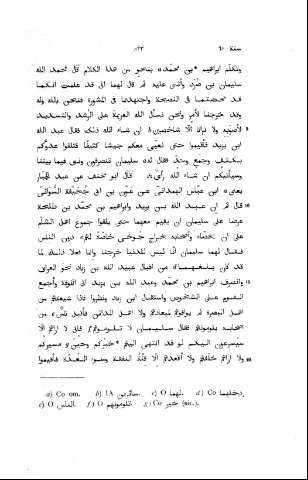 سنة ٦٥ ٥٤٣
وتكلّم ابراهيم *بن محمّد a بنحو من هذا الكلام قال فحمد الله
سليمان بن صُرَد وأثنى عليه ثم قال لهما انى قد علمت انكما
قد محضتما فى النصيحة واجتهدتما فى المشورة فنحن بالله وله
وقد خرجنا لأمر ونحن نسأل الله العزيمة على الرشد والتسديد
لأصوبه ولا نرانا الّا شاخصين b ان شاء الله ذلك فقال عبد الله
ابن يزيد فأقيموا حتى نعبّى معكم جيشا كثيفا فتلقوا عدوّكم
بكثف وجمع وحدّ فقال له c سليمان تنصرفون ونرى فيما بيننا
وسيأتيكم ان شاء الله رأى، قال ابو مخنف عن عبد الجبّار
يعنى ابن عبّاس الهمدانى عن عون بن ابى جُحَيفة السُّوائى
قال ثم ان عبد الله بن يزيد وابراهيم بن محمّد بن طلحة
عرضا على سليمان ان يقيم معهما حتى يلقوا جموع اهل الشأم
على ان يخصّاه وأصحابه بخراج جوخى خاصّة لهم d دون الناس
فقال لهما سليمان انّا ليس للدنيا خرجنا وانما فعلا ذلك لما
قد كان بلغهما من اقبال عبيد الله بن زياد نحو العراق
وانصرف ابراهيم بن محمّد وعبد الله بن يزيد الى الكوفة وأجمع
القوم على الشخوص واستقبال ابن زياد ونظروا فاذا شيعتهم من
اهل البصرة لم يوافوهم لميعادهم ولا اهل المدائن فأقبل ناس e من
اصحابه يلومونهم فقال سليمان لا تلوموهم f فانى لا اراهم الّا
سيسرعون اليكم لو قد انتهى اليهم خبركم g وحين مسيركم
ولا اراهم خلّفهم ولا أقعدهم الّا قلّة النفقة وسوء العُدّة فأقيموا
a) Co om. b) IA سائرين. c) O لهما. d) Co دخلهما.
e) O الناس. f) O تلومونهم. g) Co خبر (sic).